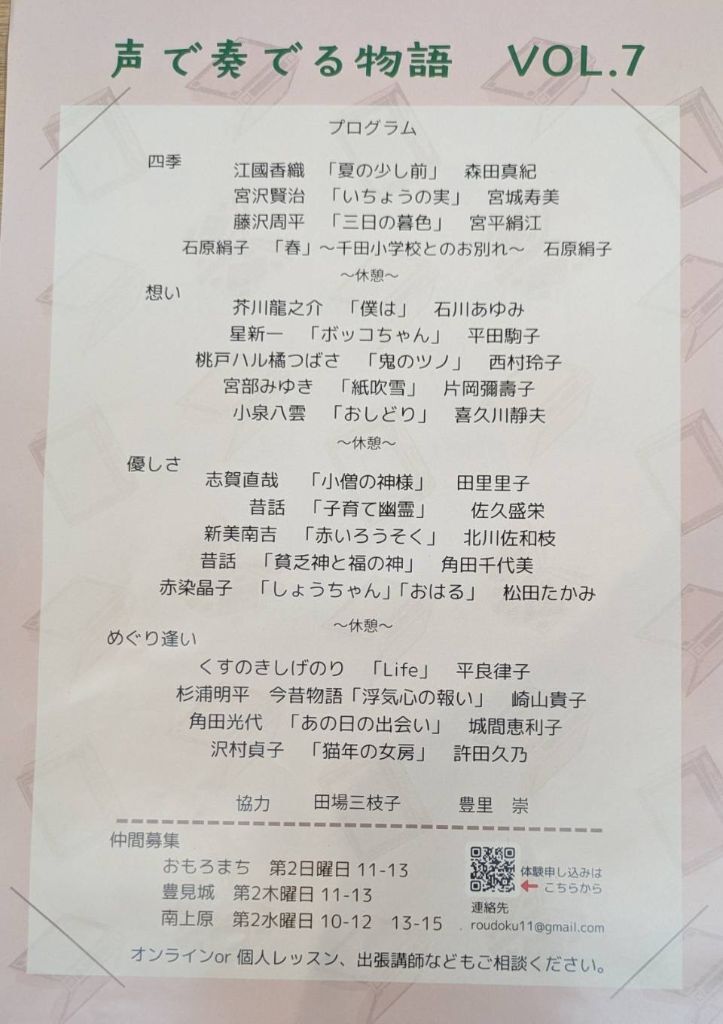 声で奏でる物語　VOL.7
プログラム
四季
江國香織　「夏の少し前」　森田真紀
宮沢賢治　「いちょうの実」　宮城寿美
藤沢周平　「三日の暮色」　宮平絹江
石原絹子　「春」～千田小学校とのお別れ～　石原絹子
～休憩～
想い
芥川龍之介　「僕は」　石川あゆみ
星新一　「ボッコちゃん」　平田駒子
桃戸ハル橘つばさ　「鬼のツノ」　西村玲子
宮部みゆき　「紙吹雪」　片岡彌壽子
小泉八雲　「おしどり」　喜久川靜夫
～休憩～
優しさ
志賀直哉　「小僧の神様」　田里里子
昔話　「子育て幽霊」　佐久盛栄
新美南吉　「赤いろうそく」　北川佐和枝
昔話　「貧乏神と福の神」　角田千代美
赤染晶子　「しょうちゃん」「おはる」　松田たかみ
～休憩～
めぐり逢い
くすのきしげのり　「Life」　平良律子
杉浦明平　今昔物語「浮気心の報い」　崎山貴子
角田光代　「あの日の出会い」　城間恵利子
沢村貞子　「猫年の女房」　許田久乃
協力　田場三枝子　豊里　崇
仲間募集
おもろまち　第2日曜日 11-13
豊見城　第2木曜日 11-13
南上原　第2水曜日 10-12　13-15
体験申し込みは
こちらから
連絡先
roudoku11@gmail.com
オンラインor 個人レッスン、出張講師などもご相談ください。